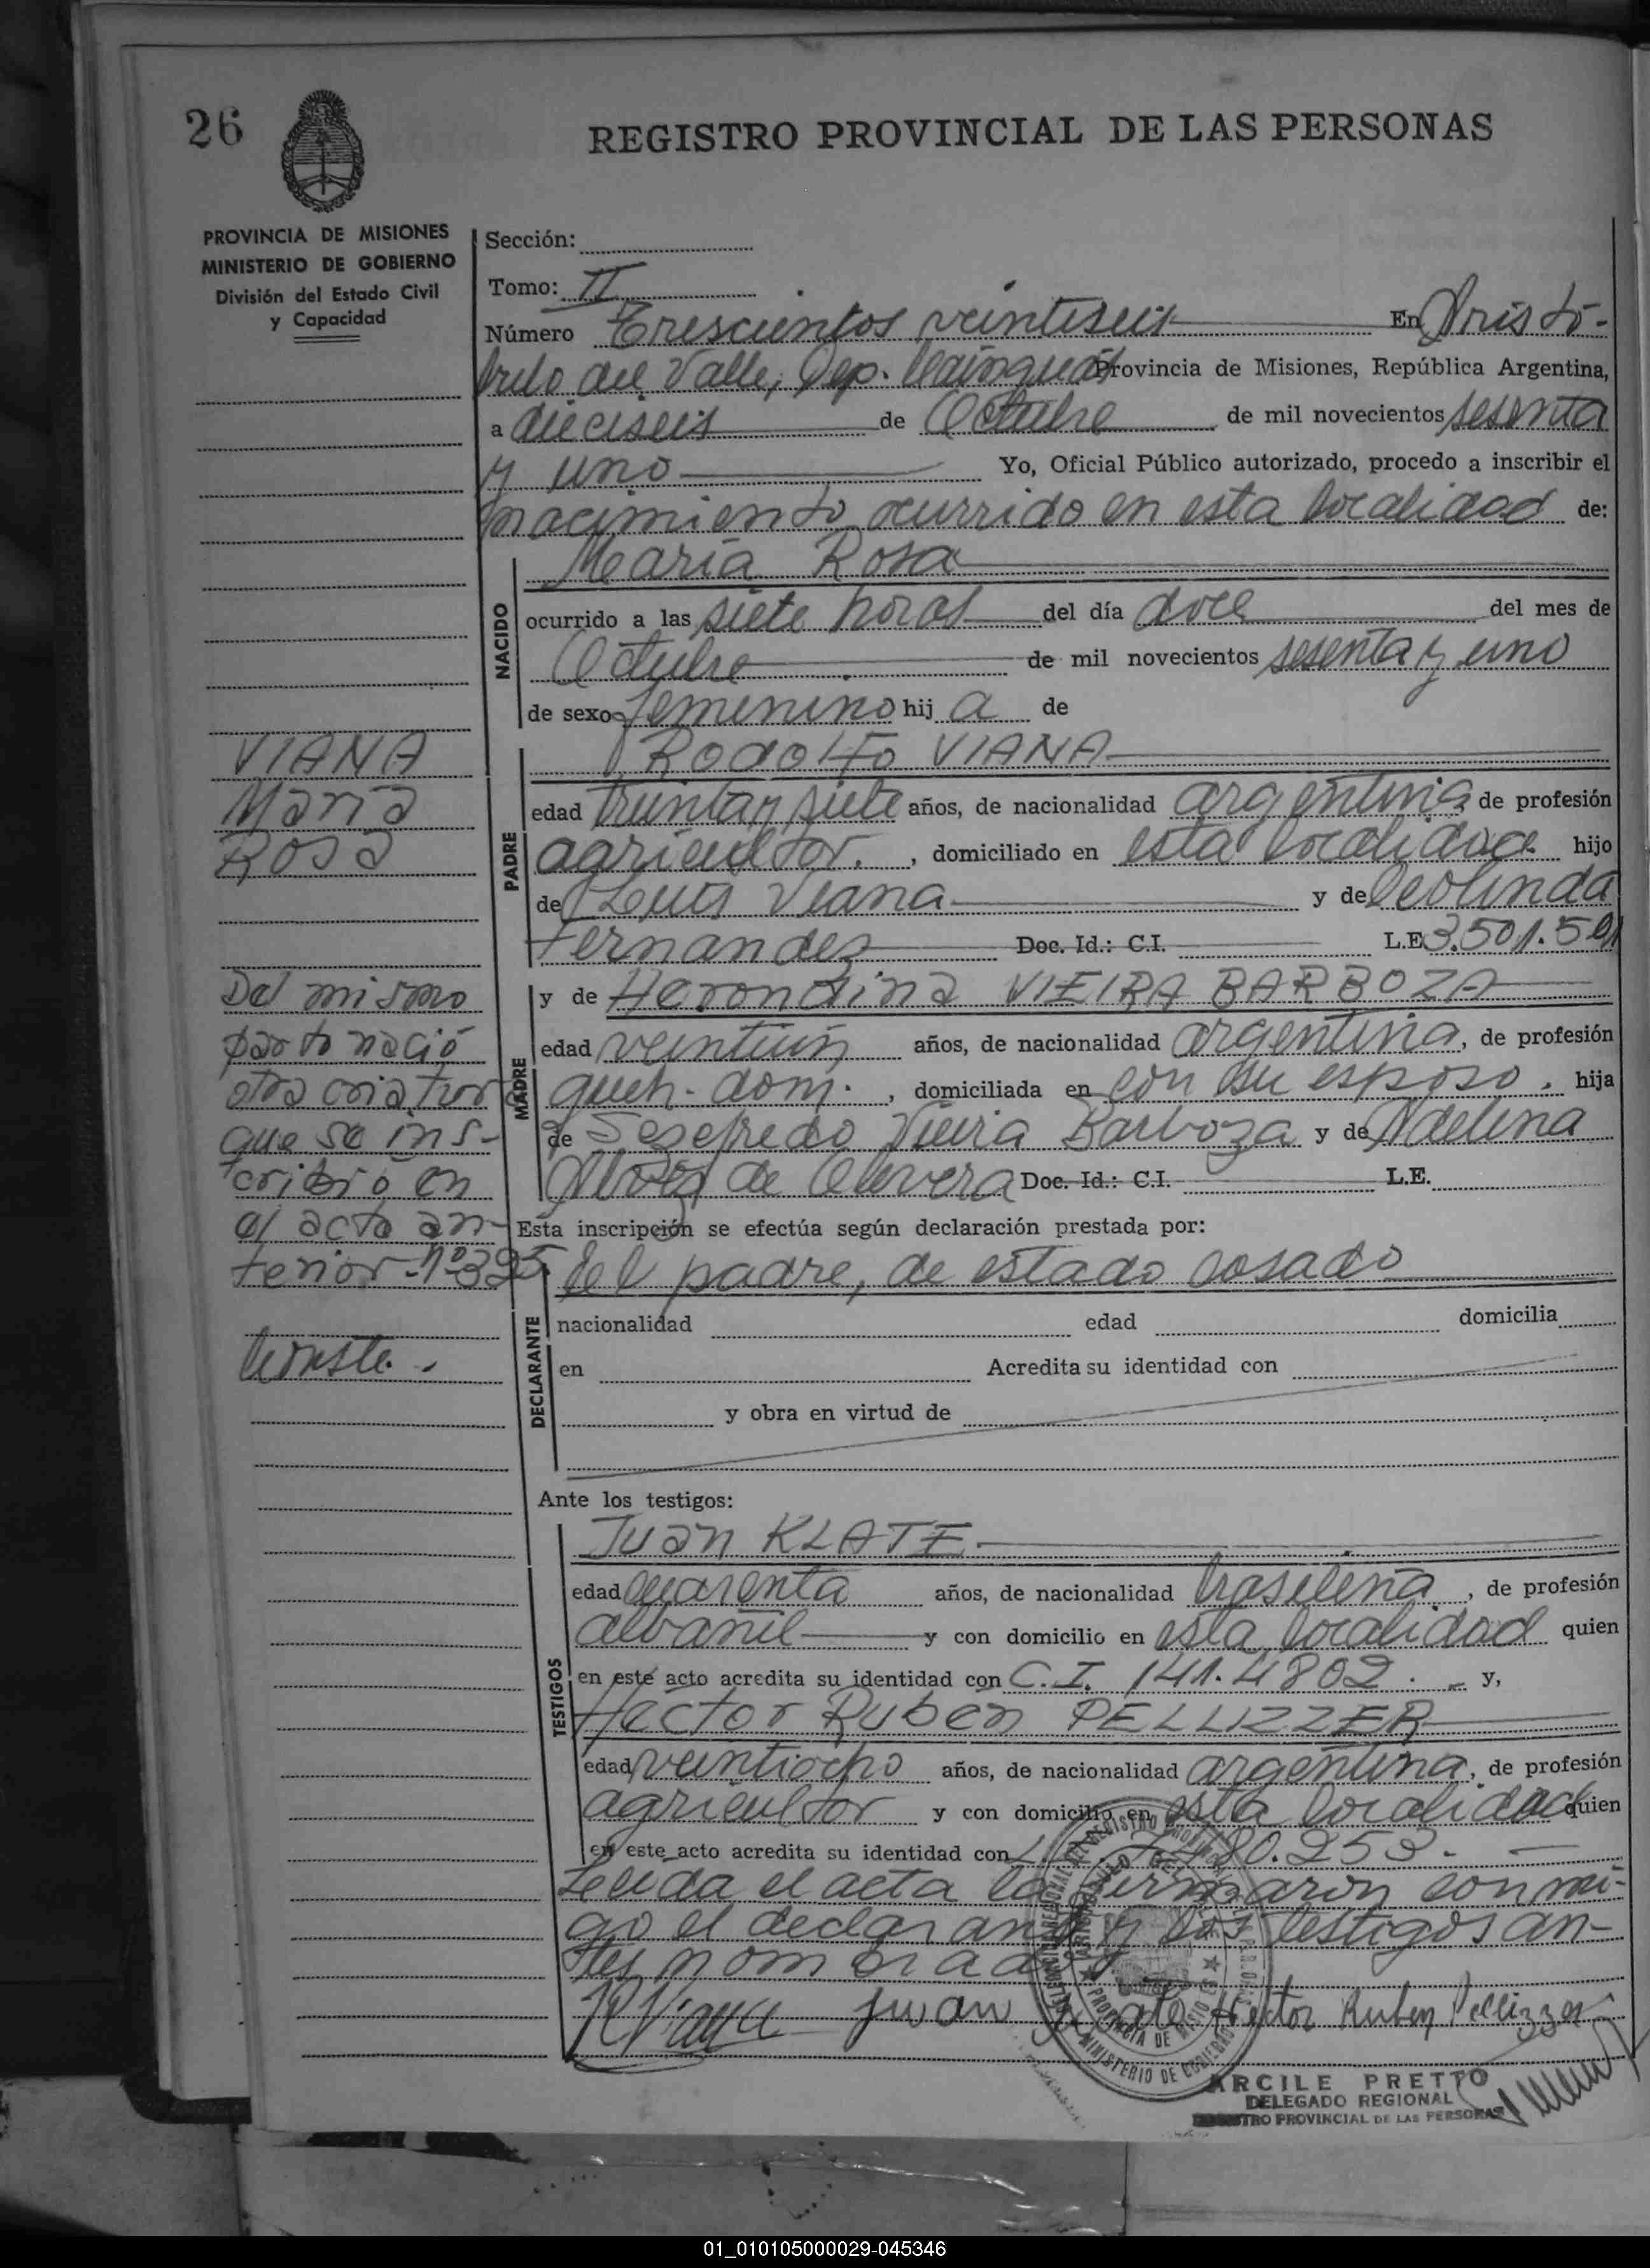 26
REGISTRO PROVINCIAL DE LAS PERSONAS
PROVINCIA DE MISIONES
MINISTERIO DE GOBIERNO
División del Estado Civil
y Capacidad
Sección:
Tomo: II
Número Trescientos veintiseis En Aristó-
bulo del Valle, Dep. Cainguás Provincia de Misiones, República Argentina,
a dieciseis de Octubre de mil novecientos sesenta
y uno Yo, Oficial Público autorizado, procedo a inscribir el
nacimiento ocurrido en esta localidad de:
María Rosa
NACIDO
ocurrido a las siete horas del día doce del mes de
Octubre de mil novecientos sesenta y uno
de sexo femenino hij a de
Rodolfo VIANA
PADRE
edad treinta y siete años, de nacionalidad argentina de profesión
agricultor. , domiciliado en esta localidad hijo
de Luis Viana y de Deolinda
Fernandez Doc. Id.: C.I. L.E. 3.501.501
y de Herondina VIEIRA BARBOZA
MADRE
edad veintiún años, de nacionalidad argentina, de profesión
queh. dom. , domiciliada en con su esposo. hija
de Sesefredo Vieira Barboza y de Adelina
Alvez de Olivera Doc. Id.: C.I. L.E.
Esta inscripción se efectúa según declaración prestada por:
del padre, de estado casado
DECLARANTE
nacionalidad edad domicilia
en Acredita su identidad con
y obra en virtud de
Ante los testigos:
Juan KLATE
TESTIGOS
edad cuarenta años, de nacionalidad brasileña , de profesión
albañil y con domicilio en esta localidad quien
en este acto acredita su identidad con C.I. 141.4802. y,
Héctor Rubén PELLIZZER
edad veintiocho años, de nacionalidad argentina, de profesión
agricultor y con domicilio en esta localidad quien
en este acto acredita su identidad con 480.253.
Leída el acta la firmaron conmi-
go el declarante y los testigos an-
tes nombrados
RViana Juan Klate Hector Ruben Pellizzer
ARCILE PRETTO
DELEGADO REGIONAL
REGISTRO PROVINCIAL DE LAS PERSONAS
VIANA
María
Rosa
Del mismo
parto nació
otra criatura
que se ins-
cribió en
el acta an-
terior-nº325
Conste.
01_010105000029-045346